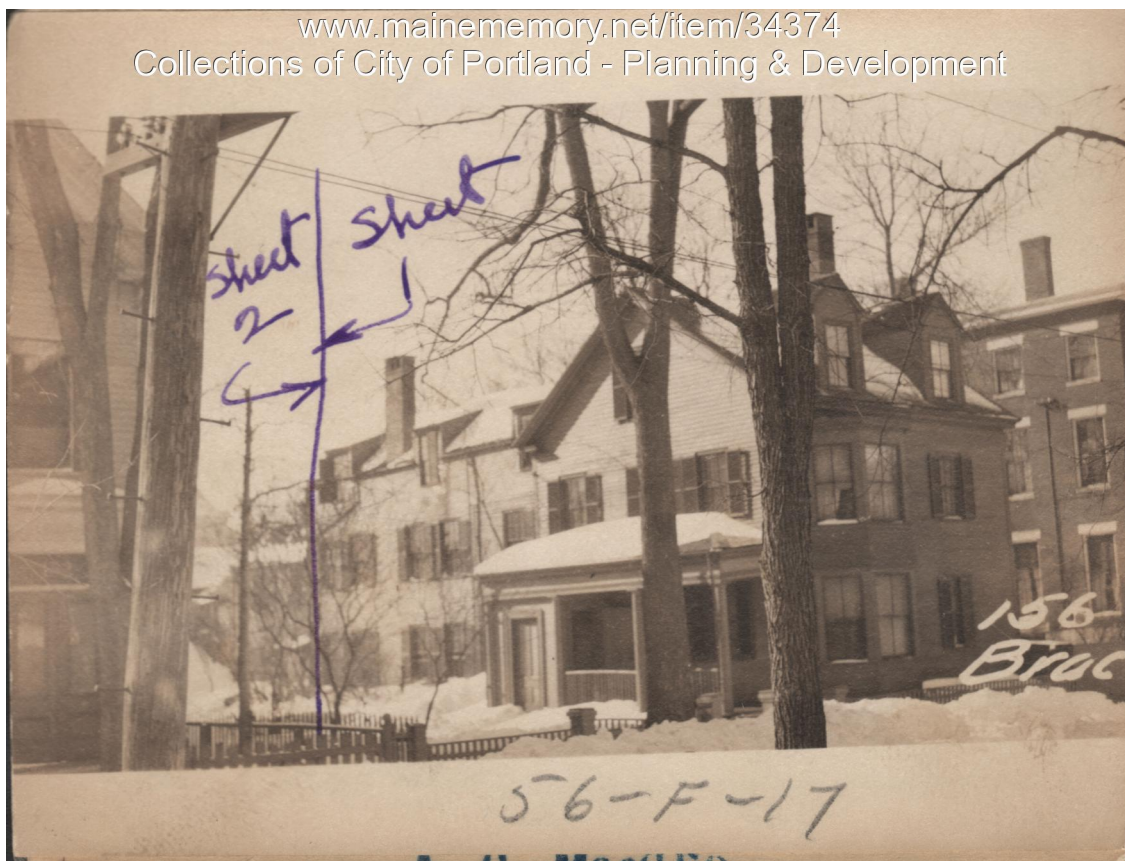 www.mainememory.net/item/34374
Collections of City of Portland - Planning & Development
Sheet
1
Sheet
2
156
Brac
56-F-17